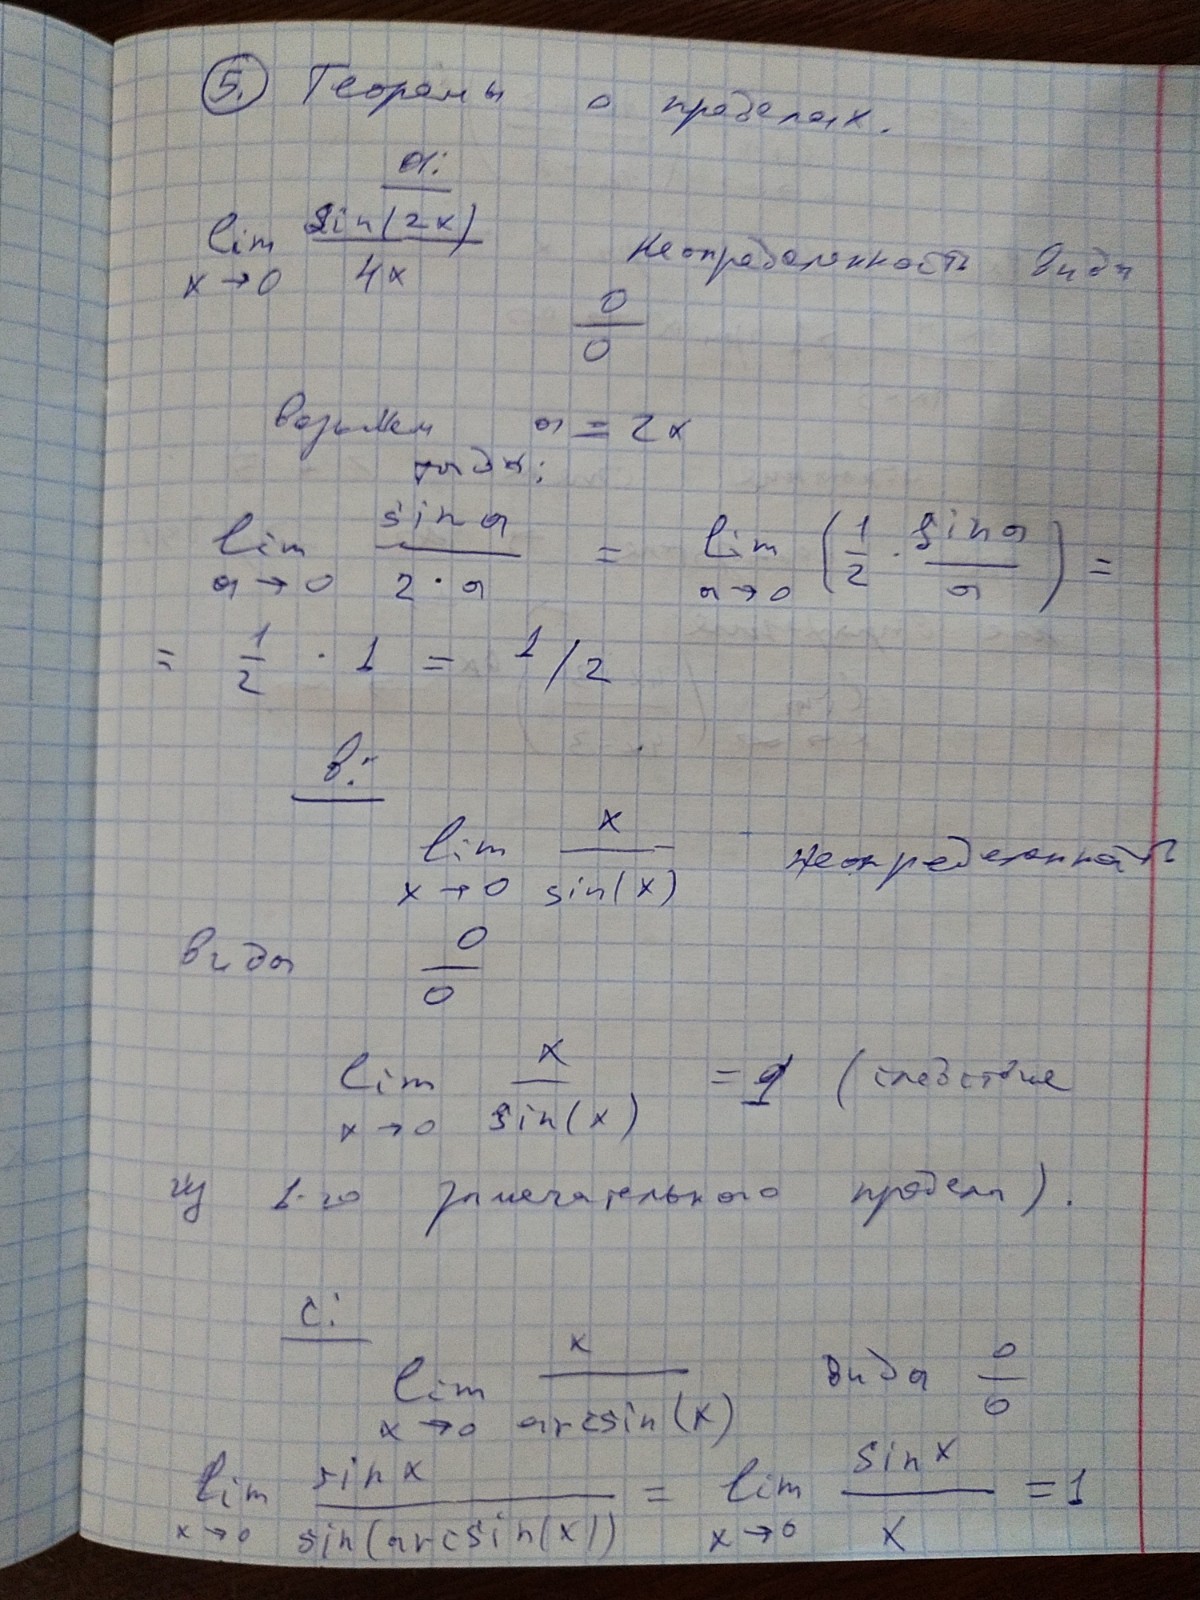 5. Теоремы о пределах.
a:
lim x→0 sin(2x) / 4x Неопределенность вида
0/0
Возьмем a = 2x
тогда:
lim a→0 sin a / 2·a = lim a→0 (1/2 · sin a / a) =
= 1/2 · 1 = 1/2
b:
lim x→0 x / sin(x) Неопределенность
вида 0/0
lim x→0 x / sin(x) = 1 (следствие
из 1-го замечательного предела).
c:
lim x→0 x / arcsin(x) вида 0/0
lim x→0 sin x / sin(arcsin(x)) = lim x→0 sin x / x = 1